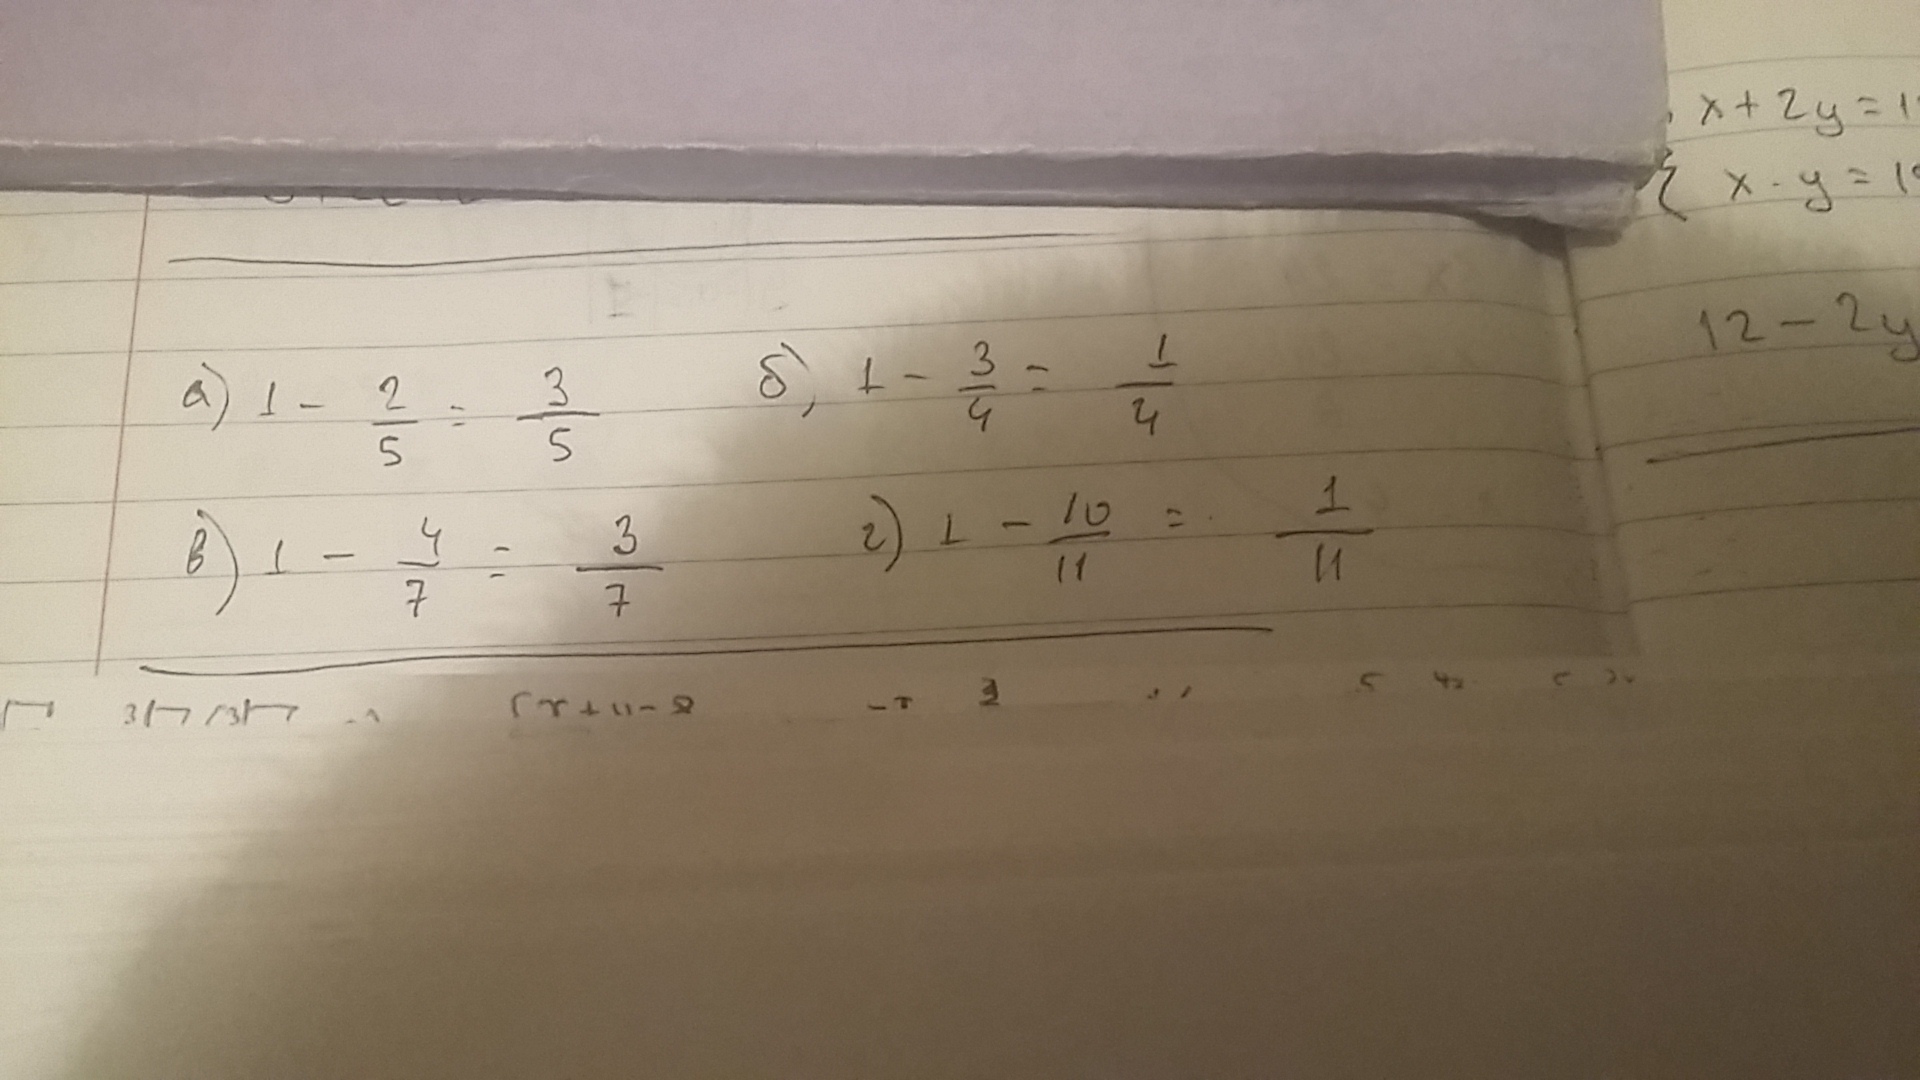 x + 2y = 1
{ x - y = 1
12 - 2y
а) 1 - 2/5 = 3/5 б) 1 - 3/4 = 1/4
в) 1 - 4/7 = 3/7 г) 1 - 10/11 = 1/11